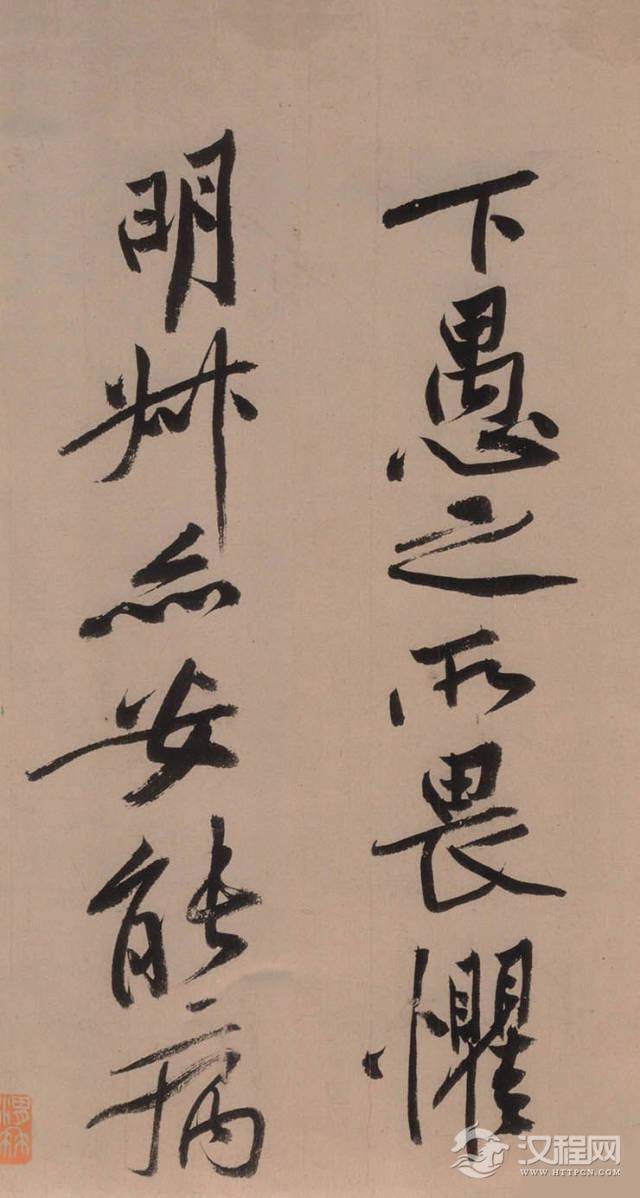 下愚之所畏懼
明叔亦安能病
汉程网
WWW.HTTPCN.COM